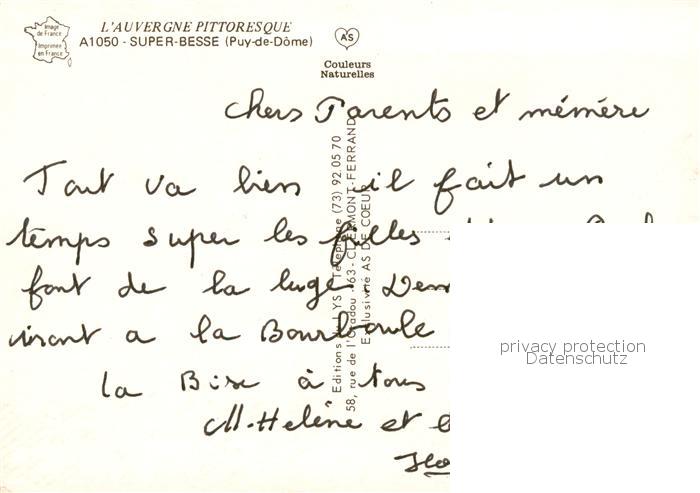 Image
de France
Imprimée
en France
L'AUVERGNE PITTORESQUE
A1050 - SUPER-BESSE (Puy-de-Dôme)
AS
Couleurs
Naturelles
Chers Parents et mémère
Tout va bien il fait un
temps super les filles
font de la luge.
iront a la Bourboule
la Bise à tous
M-Helène et
Editions LYS Téléphone (73) 92.05.70
58, rue de l'Oradou - 63-CLERMONT-FERRAND
Exclusivité AS DE COEUR
privacy protection
Datenschutz